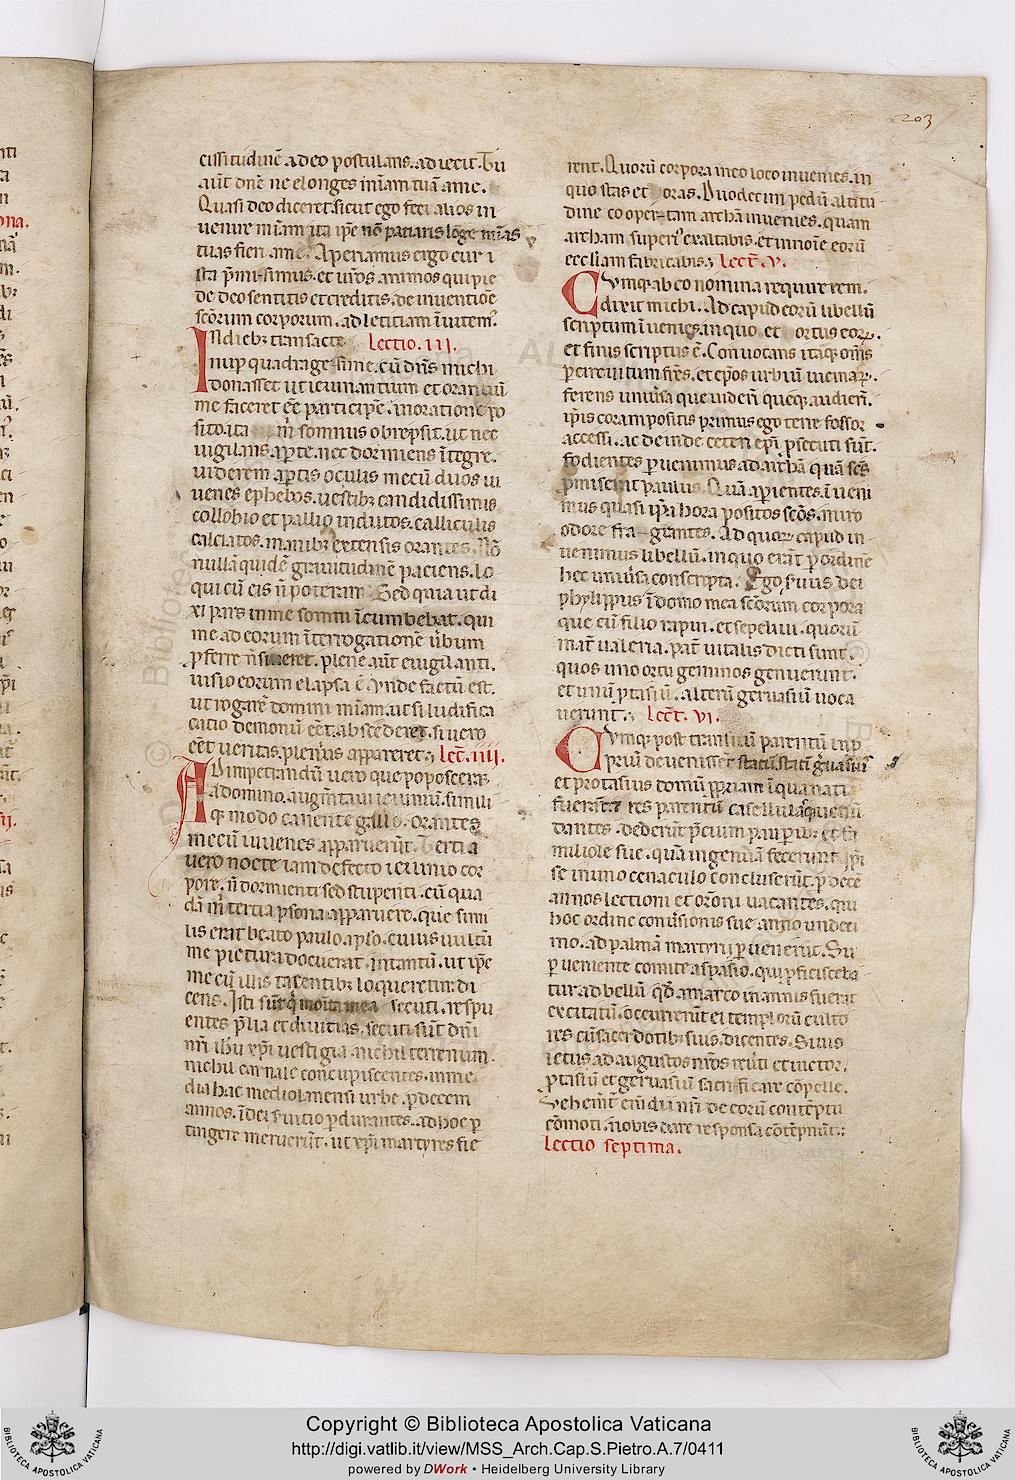 203
cissitudinē. adeo postulans. adiecit. Tu
aūt dn̄e ne elonges m̄iam tuā a me.
Quasi deo diceret. sicut ego feci alios in
venire m̄iam ita ip̄e nō patiaris loge m̄ias
tuas fieri a me. Aperiamus ergo cur i
sta p̄missimus. et vr̄os animos qui pie
de deo sentitis et creditis. de inventiōe
scōrum corporum. ad letitiam īvitem᷒.
In dieb; transacte Lectio. III.
nup quadragesime. cū dn̄s michi
donasset ut ieiunantium et orantiū
me faceret eē participē. in oratione po
situ ita m̄ somnus obrepsit. ut nec
vigilans aꝑte. nec dormiens ītegre.
viderem aꝑtis oculis mecū duos iu
venes ephebos. vestib; candidissimis
collobio et pallio indutos. calliculis
calciatos. manib; extensis orantes. Nō
nullā quidē gravitudinē paciens. lo
qui cū eis n̄ poteram. Sed quia ut di
xi pars in me somni īcumbebat. qui
me ad eorum īterrogationē v̄bum
ꝓferre n̄ sineret. plene aūt evigilanti.
visio eorum elapsa ē. Unde factū est.
ut rogarē domini m̄iam. ut si ludifica
catio demonū eēt. abscēderet. si vero
eēt veritas. plenius appareret. Lect̄. IIII.
Ad impetrandū vero que poposceraꝫ
a domino. augm̄tavi ieiuniū. simili
q; modo canente gallo. orantes
mecū iuvenes apparuerūt. Tertia
vero nocte iam defecto ieiunio cor
pore. n̄ dormienti sed stupenti. cū qua
dā m̄ tertia ꝑsona apparuere. que simi
lis erat beato paulo apl̄o. cuius vultū
me pictura docuerat. intantū. ut ip̄e
mecū illis tacentib; loqueretur. di
cens. Isti sūt qī monita mea secuti. respu
entes p̄dia et divitias. secuti sūt dn̄i
nr̄i ih̄u xp̄i vestigia. nichil terrenum.
nichil carnale concupiscentes. in me
dia hac mediolanensi urbe. ꝑ decem
annos. ī dei s̄vitio ꝑdurantes. ad hoc ꝑ
tingere meruerūt. ut xp̄i martyres fie
rent. Quorū corpora in eo loco invenies. in
quo stas et oras. Duodecim pedū altitu
dine coopertam archā invenies. quam
archam superi᷒ exaltabis. et in noīe eorū
eccl̄iam fabricabis. Lect̄. V.
Cumq; ab eo nomina requirerem.
dixit michi. Ad capud eorū libellū
scriptum īvenies. in quo et ortus eoꝝ.
et finis scriptus ē. Convocans itaq; om̄s
ꝑ circuitum fr̄es. et ep̄os urbiū vicinaꝝ.
ferens univ̄sa que viderā queq; audierā.
ip̄is coram positis primus ego terre fossor
accessi. ac deinde ceteri ep̄i ꝓsecuti sūt.
fodientes ꝑvenimus ad archā quā sc̄s
ꝓmiserat paulus. Quā aperientes. īveni
mus quasi ip̄a hora positos scōs. miro
odore fragrantes. Ad quoꝝ capud in
venimus libellū. in quo erāt ꝑ ordinē
hec univ̄sa conscripta. Ego s̄vus dei
phylippus ī domo mea scōrum corpora
que cū filio rapui. et sepelivi. quorū
mat̄ valeria. pat̄ vitalis dicti sunt.
quos uno ortu geminos genuerunt.
et unū ꝓtasiū. alterū gervasiū voca
verunt. Lect̄. VI.
Cumq; post transitū parentū in p
priū devenisset statū. statī gervasius
et protasius domū ꝓpriam ī qua nati
fuerāt a res parentū casellulāq;
dantes. dederūt p̄cium pauꝑib; et fa
miliole sue. quā ingenuā fecerunt. ip̄i
se in uno cenaculo cōncluserūt. ꝑ decē
annos lectioni et orōni vacantes. qui
hoc ordine conv̄sionis sue anno undeci
mo. ad palmā martyrii ꝑvenerūt. Su
ꝑveniente comite aspasio. qui ꝓficisceba
tur ad bellū. qd̄ a marcomannis fuerat
excitatū. occurrerūt ei templorū culto
res cū sacerdotib; suis. dicentes. Si vis
letus ad augustos nr̄os rev̄ti et victor.
ꝓtasiū et gervasiū sacrificare cōpelle.
Vehem̄t enī dii nr̄i de eorū contēptu
cōmoti. nobis dare responsa cōtēpnūt.
Lectio septima.
Copyright © Biblioteca Apostolica Vaticana
http://digi.vatlib.it/view/MSS_Arch.Cap.S.Pietro.A.7/0411
powered by DWork • Heidelberg University Library
BIBLIOTECA APOSTOLICA VATICANA
BIBLIOTECA APOSTOLICA VATICANA